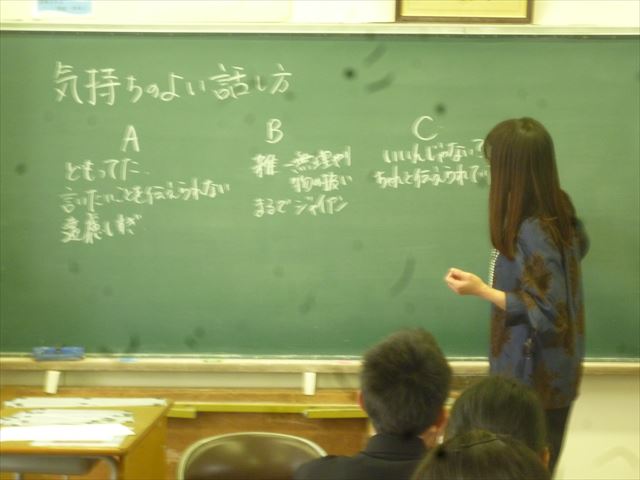 気持ちのよい話し方
A
B
C
言いたいことを伝えられない
遠慮しすぎ
雑 無理やり
物の扱い
まるでジャイアン
いいんじゃない?
ちゃんと伝えられてい